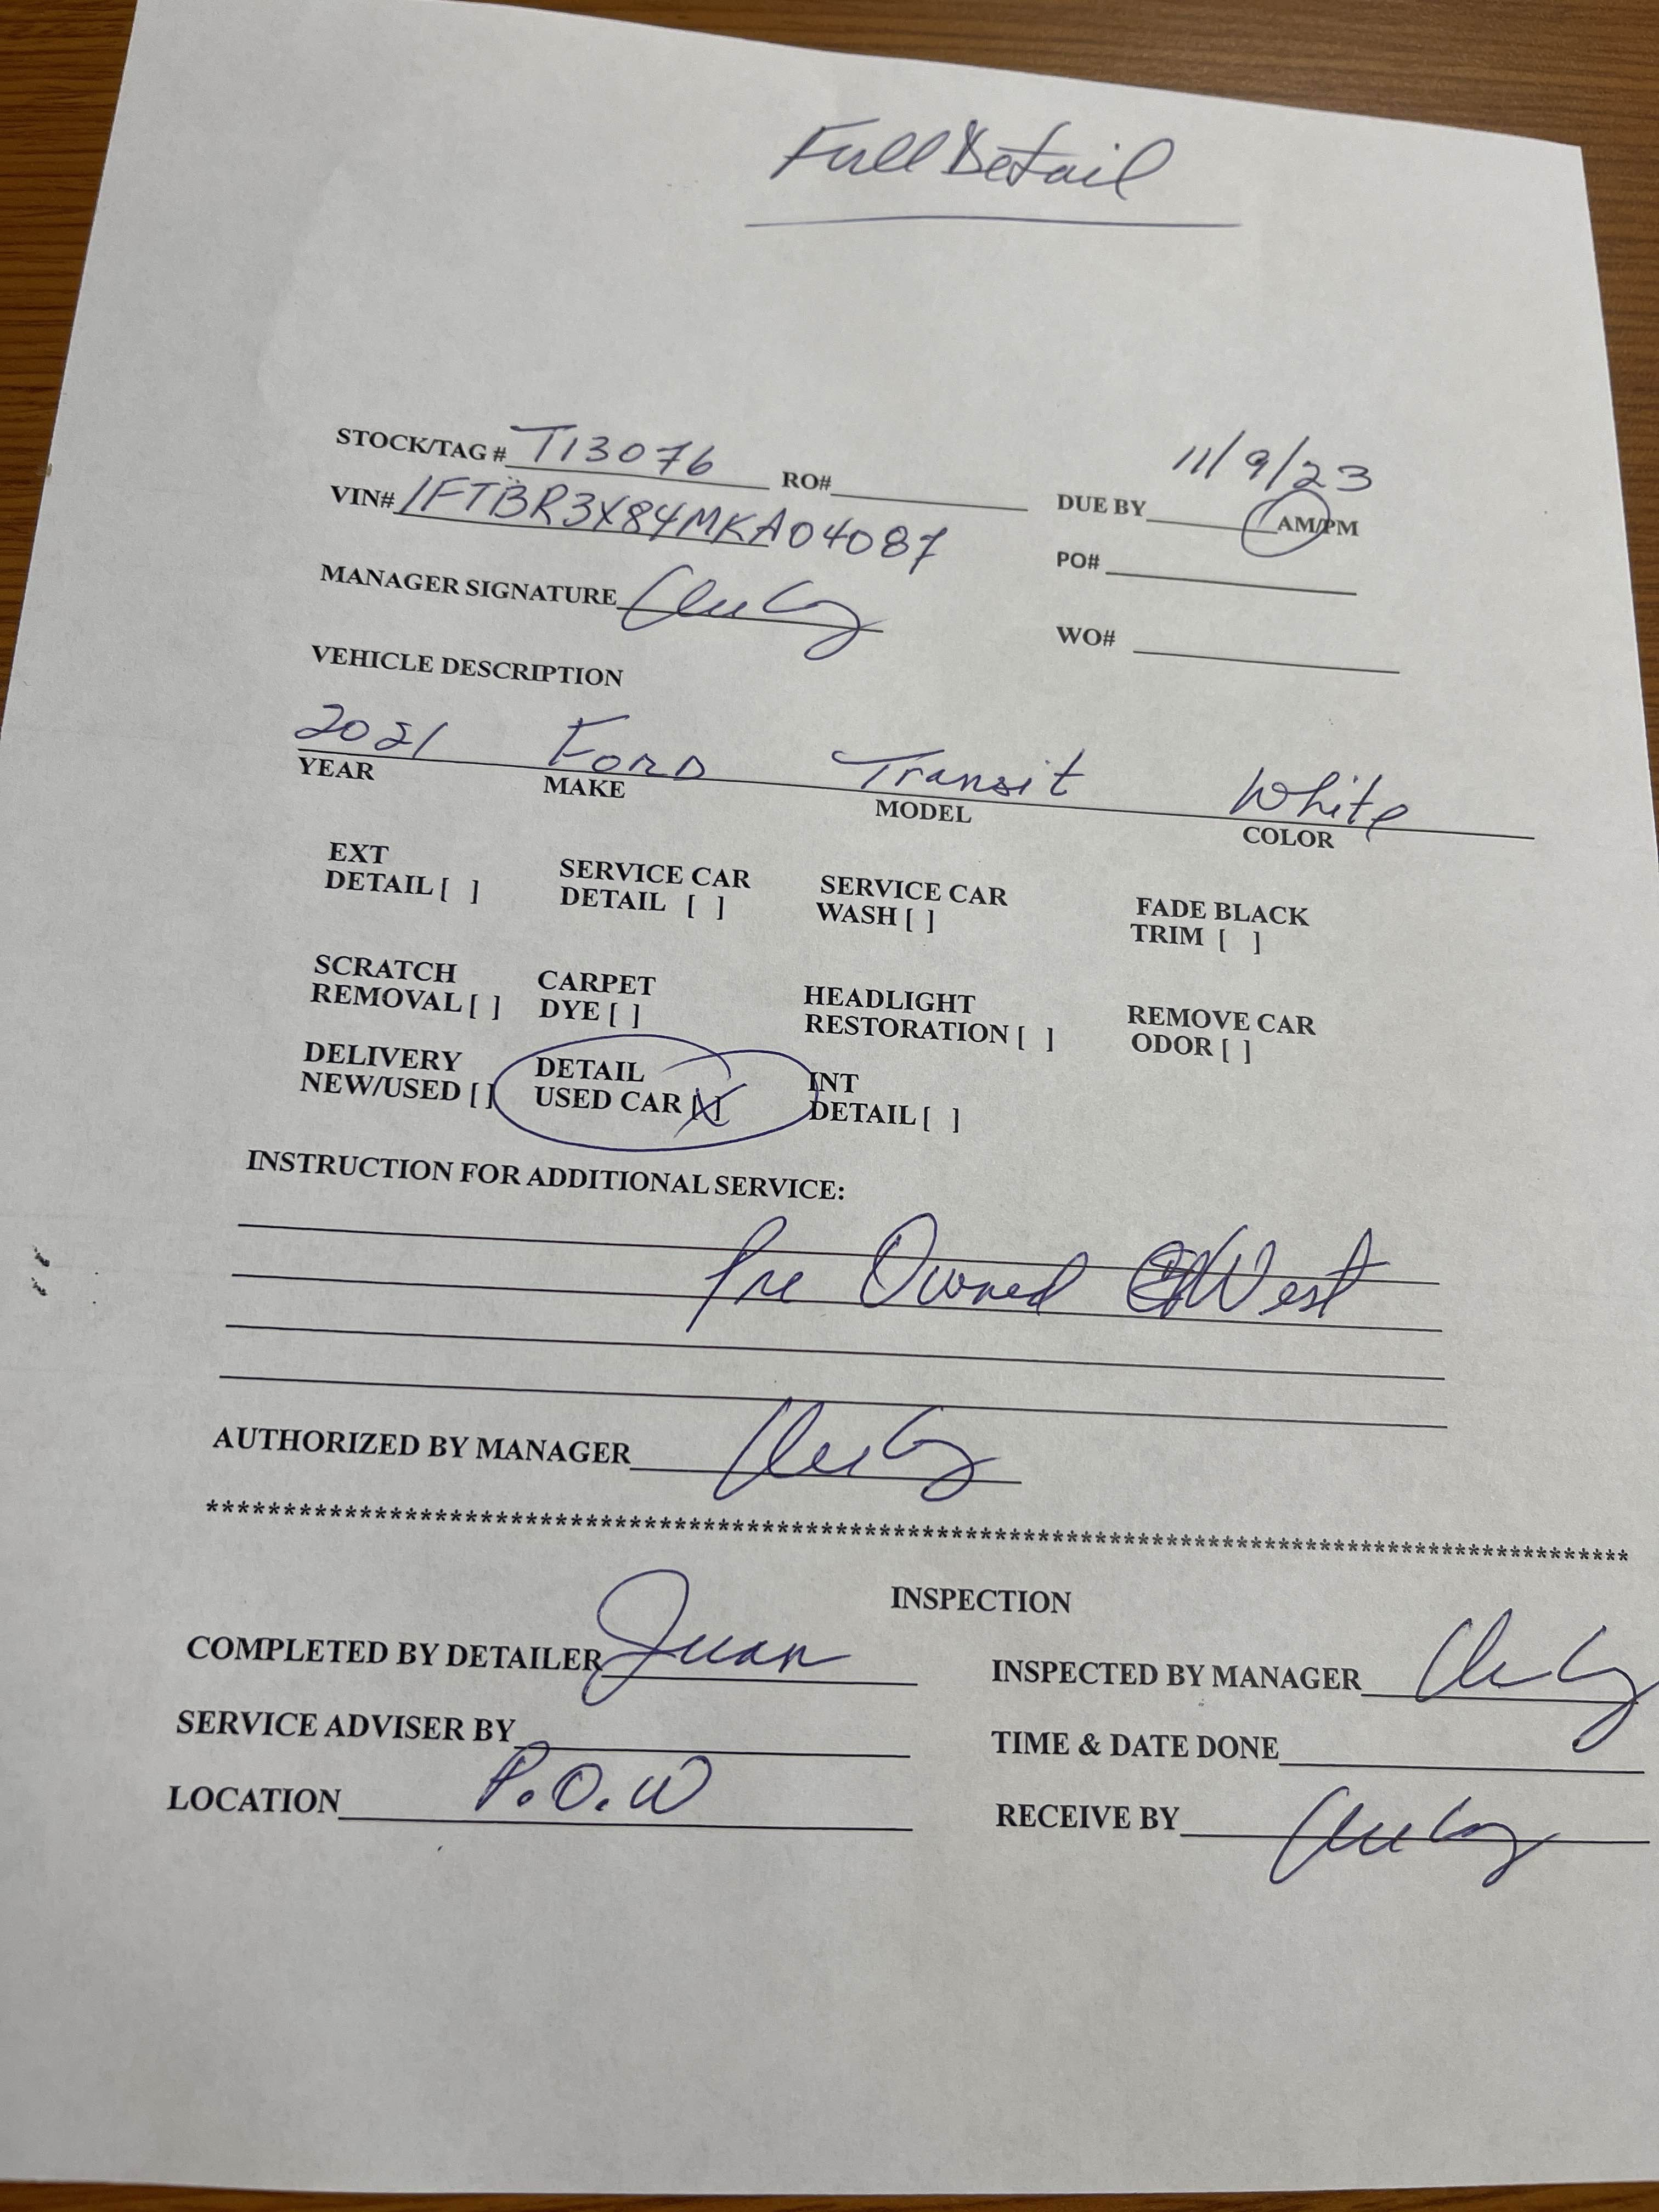 Full Detail
STOCK/TAG # T13076 RO# 11/9/23
VIN# 1FTBR3X84MKA04087 DUE BY AM/PM
PO#
MANAGER SIGNATURE
WO#
VEHICLE DESCRIPTION
2021 Ford Transit White
YEAR MAKE MODEL COLOR
EXT SERVICE CAR SERVICE CAR FADE BLACK
DETAIL [ ] DETAIL [ ] WASH [ ] TRIM [ ]
SCRATCH CARPET HEADLIGHT REMOVE CAR
REMOVAL [ ] DYE [ ] RESTORATION [ ] ODOR [ ]
DELIVERY DETAIL INT
NEW/USED [ ] USED CAR [X] DETAIL [ ]
INSTRUCTION FOR ADDITIONAL SERVICE:
Pre Owned West
AUTHORIZED BY MANAGER
********************************************************************************************
INSPECTION
COMPLETED BY DETAILER Juan INSPECTED BY MANAGER
SERVICE ADVISER BY TIME & DATE DONE
LOCATION P.O.W RECEIVE BY